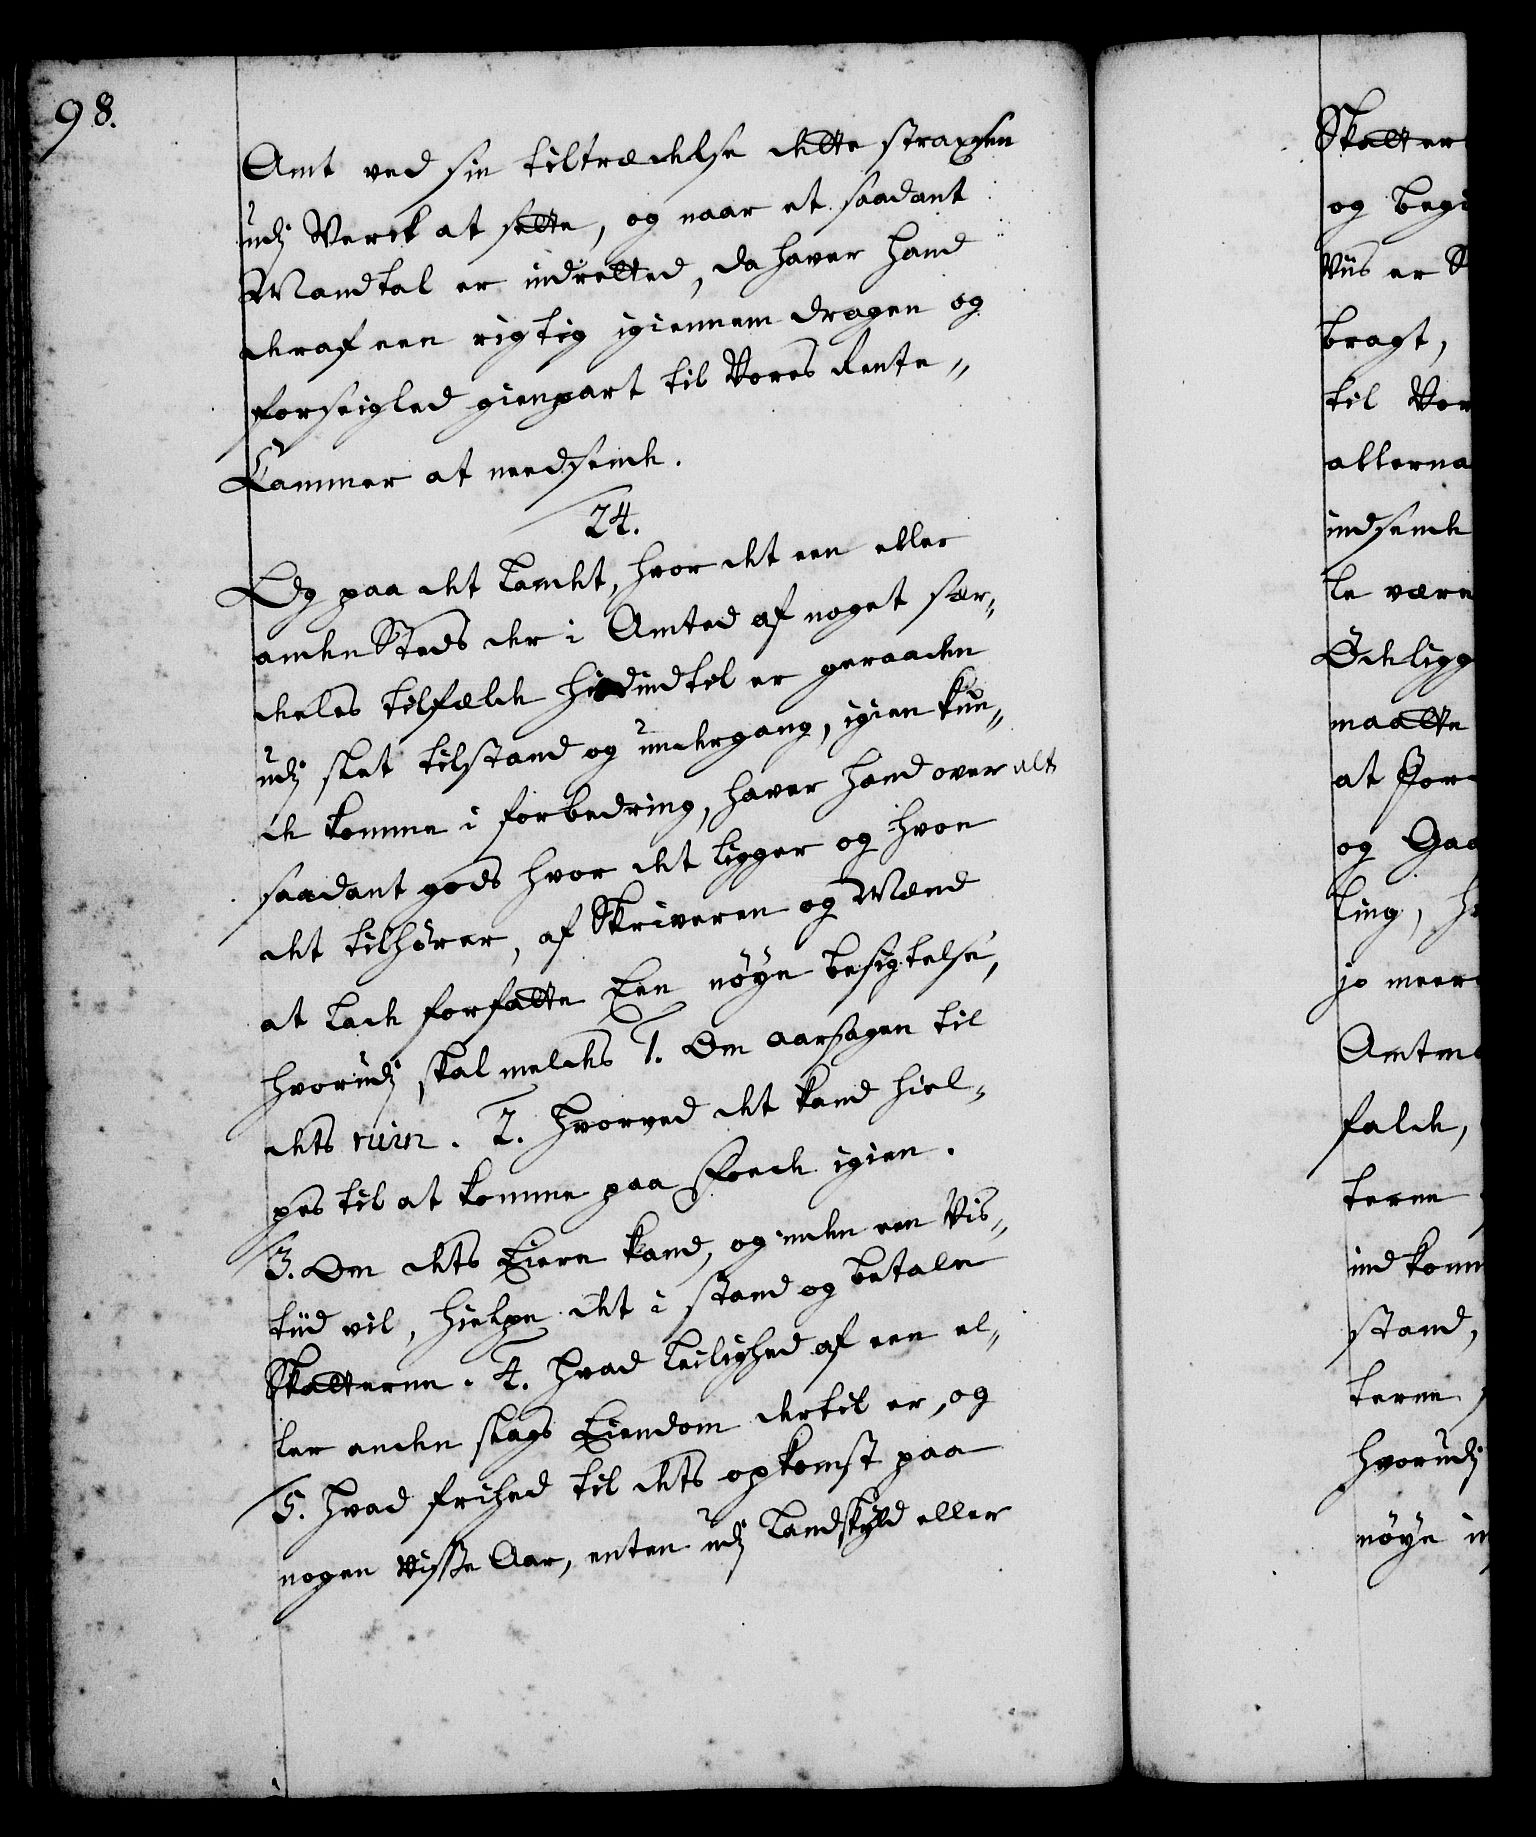 98.
Amt ved sin tiltrædelse dette straxsen
udj Verck at sætte, og naar et saadant
Mandtal er indrettet, da haver hand
deraf een rigtig igiennem dragen og
forseigled gienpart til Vores Rente-
Cammer at needsende.
24.
Og paa det Landet, hvor det een eller
anden Steds der i Amted af noget sær-
deles tilfælde hidindtil er geraaden
udj slet tilstand og undergang, igien kun-
de komme i forbedring, haver hand over alt
saadant gods hvor det ligger og hvem
det tilhører, af Skriveren og Mænd
at lade forfatte Een nøye besigtelse,
hvorudj skal meldes 1. Om aarsagen til
dets ruin. 2. Hvorved det kand hiel-
pes til at komme paa Foede igien.
3. Om dets Eiere kand, og inden een Vis
tiid vil, hielpe det i stand og betale
Skatterne. 4. Hvad leilighed af een el-
ler anden slags Eiendom dertil er, og
5. Hvad frihed til dets opkomst paa
nogen visse Aar, enten udj Landskyld eller
Skatter
og begi
Viis er S
bragt,
til Vor
allerna
indsende
le være
Ødeligg
maatte
at For
og Gaa
ling, h
jo meer
Amtma
falde,
terne
indkom
stand,
terne
hvorudj
nøye in